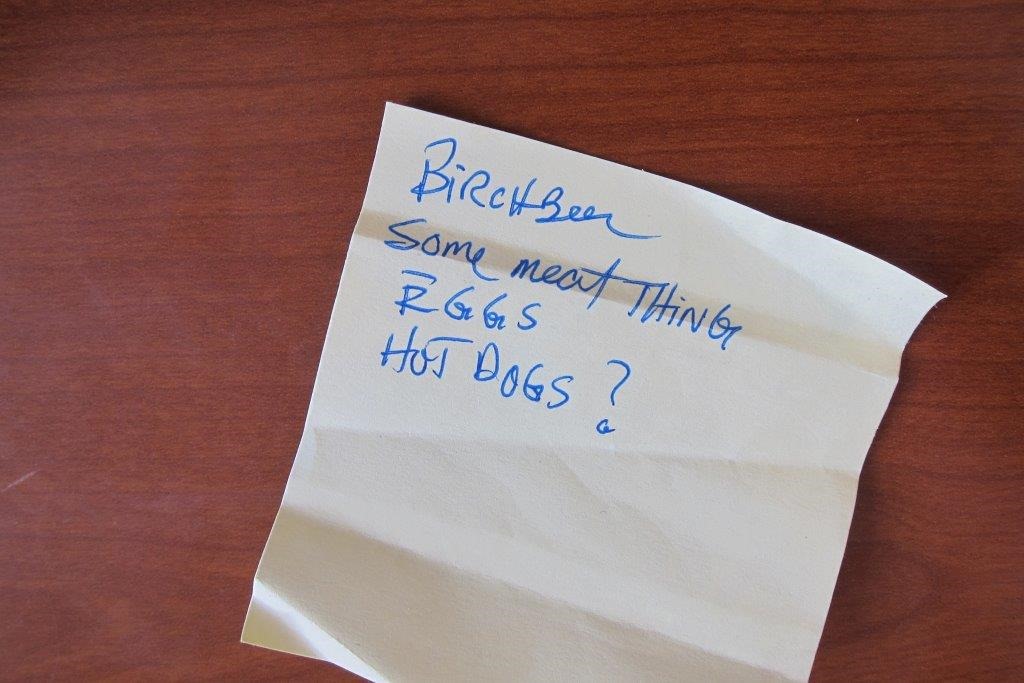 BiRCHBeer
Some meat THiNG
EGGS
HOT DOGS ?